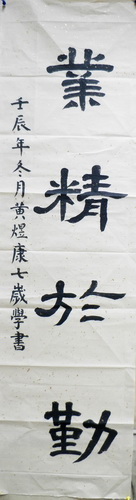 業精於勤
壬辰年冬月黄煜康七歲學書